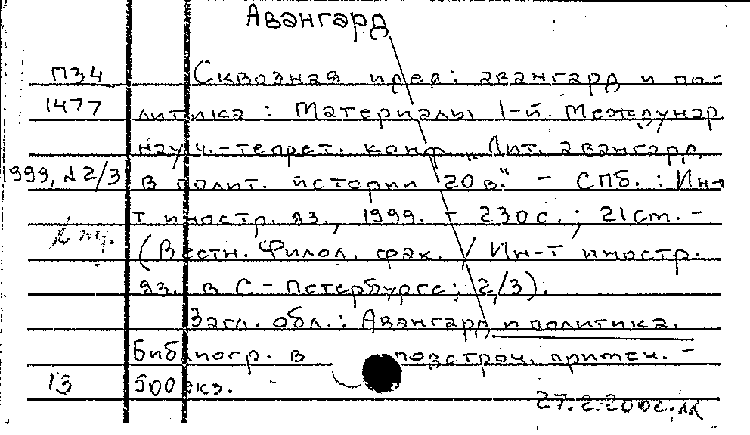 Авангард
П34 Сквозная идея: авангард и по-
1477 литика: Материалы 1-й Междунар.
науч.-теорет. конф. „Лит. авангард
999, N2/3 в полит. истории 20 в." - СПб.: Ин-
т иностр. яз., 1999. - 230 с.; 21 см. -
(Вестн. Филол. фак. / Ин-т иностр.
яз. в С-Петербурге; 2/3).
Загл. обл.: Авангард и политика.
Библиогр. в подстроч. примеч. -
13 500 экз.